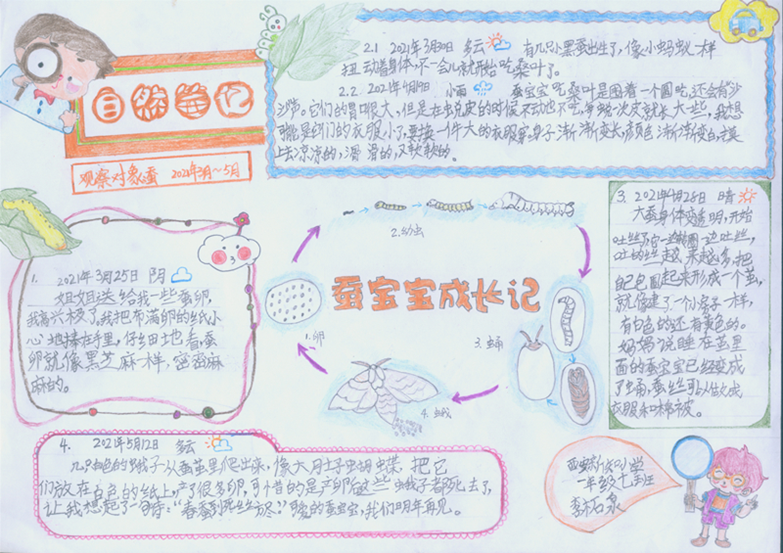 自然笔记
观察对象蚕 2021年3月~5月
1. 2021年3月25日 阴
姐姐送给我一些蚕卵,
我高兴极了,我把布满卵的纸小
心地捧在手里,仔细地看,蚕
卵就像黑芝麻一样,密密麻
麻的。
2.1 2021年3月30日 多云 有几只小黑蚕出生了,像小蚂蚁一样
扭动着身体,不一会儿就开始吃桑叶了。
2.2. 2021年4月19日 小雨 蚕宝宝吃桑叶是围着一个圆吃,还会有沙
沙声。它们的胃口很大,但是在蜕皮的时候不动也不吃,每蜕一次皮就长大一些,我想
可能是它们的衣服小了,要换一件大的衣服穿,身子渐渐变长,颜色渐渐变白,摸
上去凉凉的,滑滑的,又软软的。
3. 2021年4月28日 晴
大蚕身体变透明,开始
吐丝了,
吐的丝越来越多,把
自己包围起来形成一个茧,
就像建了一个小房子一样,
有白色的还有黄色的。
妈妈说睡在茧里
面的蚕宝宝已经变成
了蛹,蚕丝可以做成
衣服和棉被。
蚕宝宝成长记
1.卵
2.幼虫
3.蛹
4.蛾
4. 2021年5月12日 多云
几只白色的蛾子从蚕茧里爬出来,像大肚子蝴蝶,把它
们放在白色的纸上,产了很多卵,可惜的是产卵后这些蛾子都死去了,
让我想起了一句诗:“春蚕到死丝方尽”可爱的蚕宝宝,我们明年再见。
小学
一年级十班